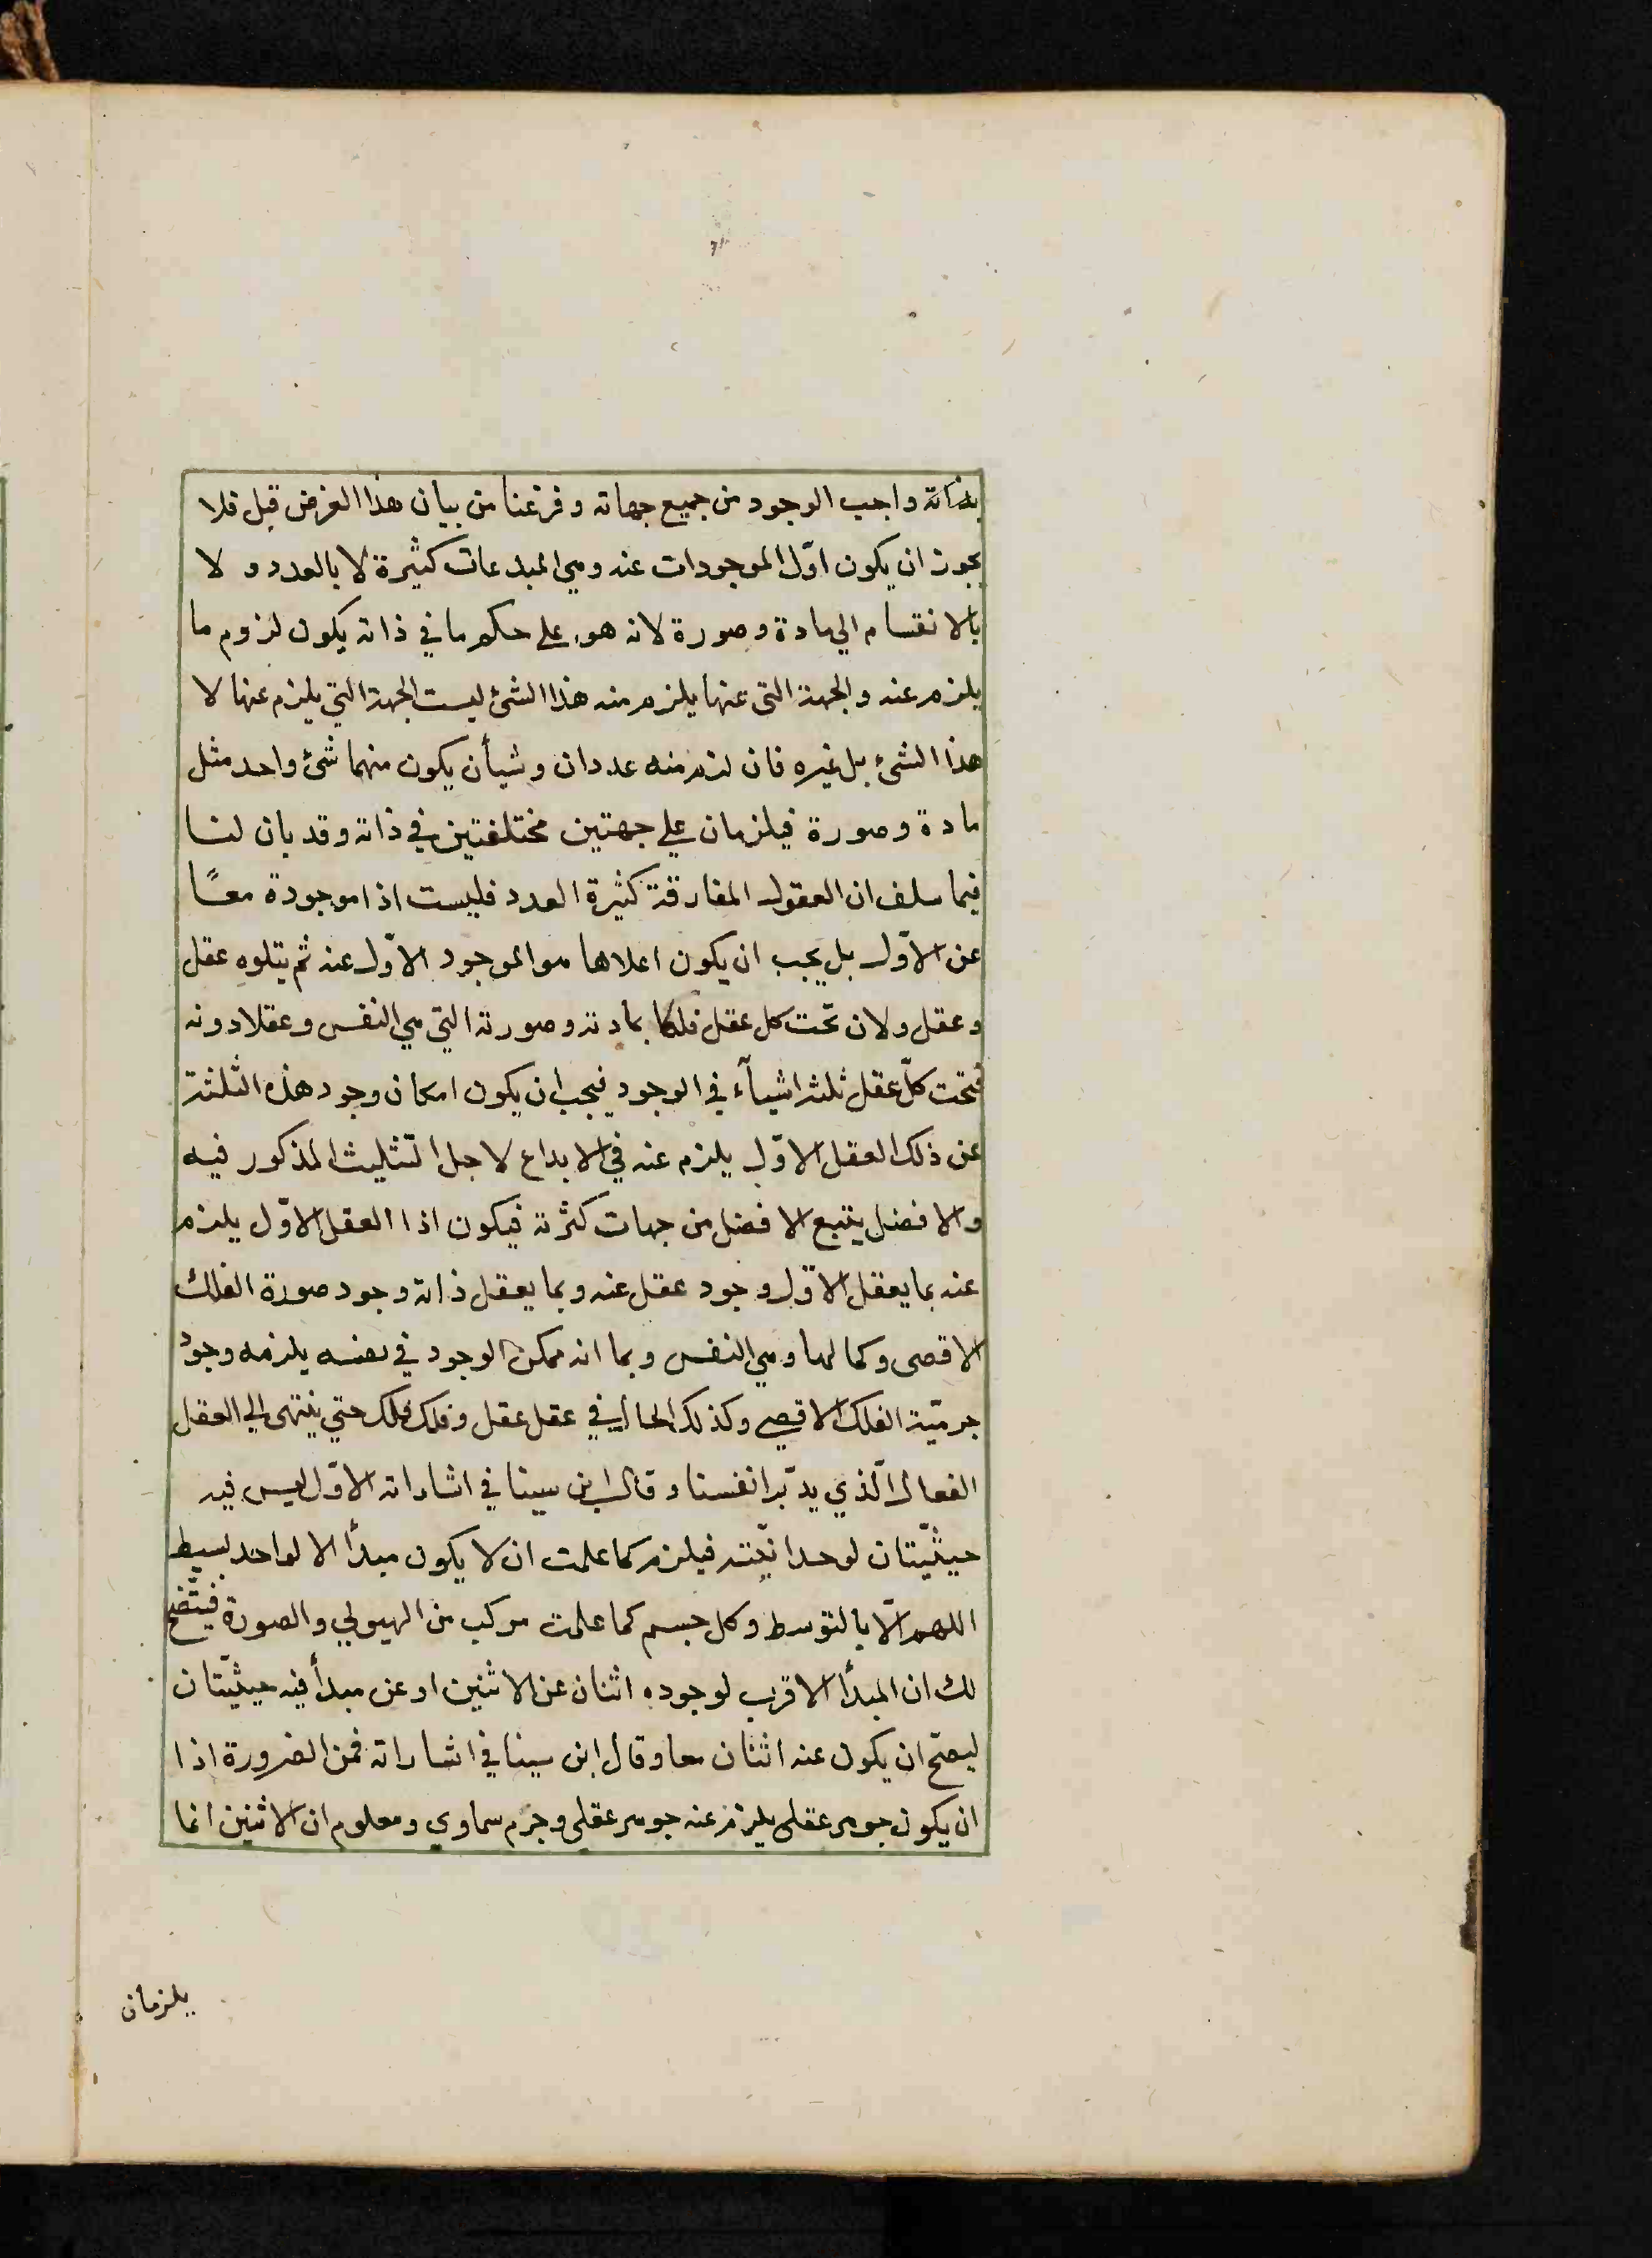 بذاته واجب الوجود من جميع جهاته وفرغنا من بيان هذا الغرض قبل فلا
يجوز ان يكون اوّل الموجودات عنه وهي المبدعات كثيرة لا بالعدد و لا
بالانقسام الي مادة وصورة لانه هو على حكم ما في ذاته يكون لزوم ما
يلزم عنه والجهة التى عنها يلزم منه هذا الشئ ليست الجهة التي يلزم عنها لا
هذا الشئ بل غيره فان لزم منه عددان وشيأن يكون منهما شئ واحد مثل
مادة وصورة فيلزمان علي جهتين مختلفتين في ذاته وقد بان لنا
فيما سلف ان العقول المفارقة كثيرة العدد فليست اذا موجودة معًا
عن الاوّل بل يجب ان يكون اعلاها هو الموجود الاوّل عنه ثم يتلوه عقل
وعقل ولان تحت كل عقل فلكا بمادته وصورته التي هي النفس وعقلا دونه
فتحت كلّ عقل ثلثه اشيآء في الوجود فيجب ان يكون امكان وجود هذه الثلثة
عن ذلك العقل الاوّل يلزم عنه في الابداع لاجل التّثليث المذكور فيه
والافضل يتبع الافضل من جهات كثرته فيكون اذا العقل الاوّل يلزم
عنه بما يعقل الاوّل وجود عقل عنه وبما يعقل ذاته وجود صورة الفلك
الاقصى وكمالها وهي النفس وبما انه ممكن الوجود في نفسه يلزمه وجود
جرميّة الفلك الاقصي وكذلك الحال في عقل عقل وفلك فلك حتي ينتهى الي العقل
الفعال الّذي يدبّر انفسنا وقال ابن سينا في اشاراته الاوّل ليس فيه
حيثيّتان لوحدانيّته فيلزم كما علمت ان لا يكون مبدأ الا لواحد بسيط
اللهم الّا بالتوسط وكل جسم كما علمت مركب من الهيولي والصورة فيتّضح
لك ان المبدأ الاقرب لوجوده اثنان عن الاثنين او عن مبدأ فيه حيثيّتان
ليصحّ ان يكون عنه اثنان معا وقال ابن سينا في اشاراته فمن الضرورة اذا
ان يكون جوهر عقلى يلزم عنه جوهر عقلى وجرم سماوي ومعلوم ان الاثنين انما
يلزمان